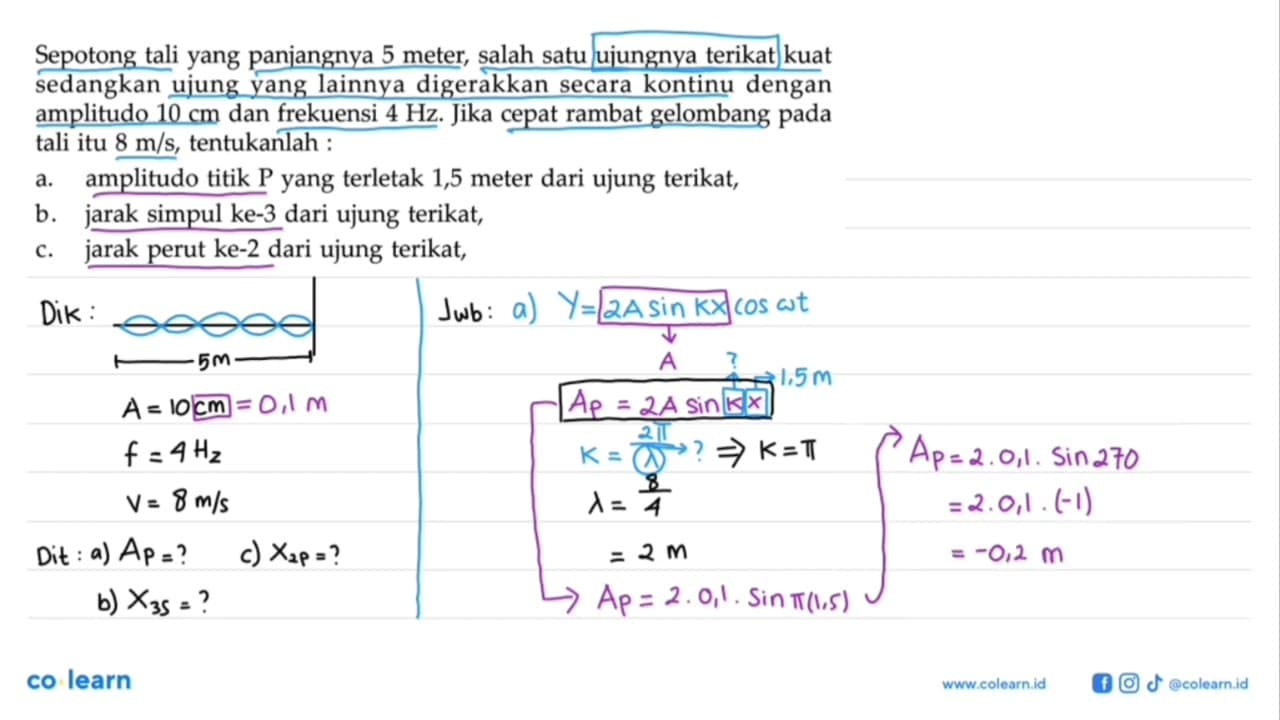 Sepotong tali yang panjangnya 5 meter, salah satu ujungnya terikat kuat
sedangkan ujung yang lainnya digerakkan secara kontinu dengan
amplitudo 10 cm dan frekuensi 4 Hz. Jika cepat rambat gelombang pada
tali itu 8 m/s, tentukanlah :
a. amplitudo titik P yang terletak 1,5 meter dari ujung terikat,
b. jarak simpul ke-3 dari ujung terikat,
c. jarak perut ke-2 dari ujung terikat,
Dik :
5m
A = 10 cm = 0,1 m
f = 4 Hz
V = 8 m/s
Dit : a) Ap = ? c) X2p = ?
b) X3s = ?
Jwb : a) Y = 2A sin KX cos ωt
A ?
1,5 m
Ap = 2A sin K X
K = 2π/λ ? ⇒ K = π
λ = 8/4
= 2 m
Ap = 2. 0,1. Sin π(1,5)
Ap = 2. 0,1. Sin 270
= 2. 0,1. (-1)
= -0,2 m
co learn
www.colearn.id
@colearn.id